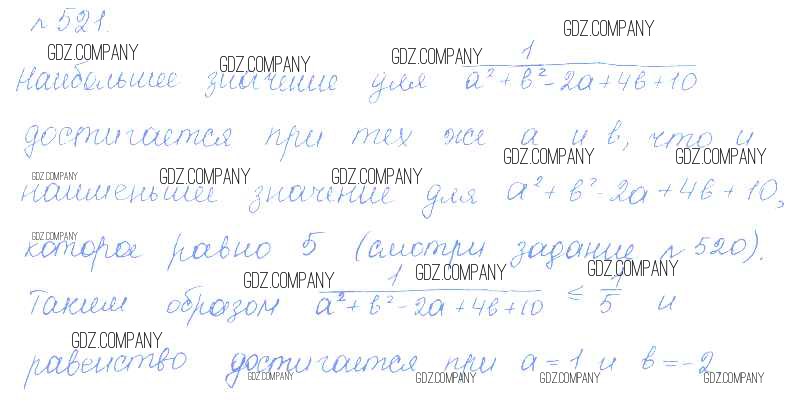 № 521.
GDZ.COMPANY GDZ.COMPANY GDZ.COMPANY GDZ.COMPANY
Наибольшее значение для 1/(a² + b² - 2a + 4b + 10)
достигается при тех же a и b, что и
GDZ.COMPANY GDZ.COMPANY GDZ.COMPANY GDZ.COMPANY GDZ.COMPANY
наименьшее значение для a² + b² - 2a + 4b + 10,
GDZ.COMPANY
которое равно 5 (смотри задание № 520).
GDZ.COMPANY GDZ.COMPANY GDZ.COMPANY
Таким образом 1/(a² + b² - 2a + 4b + 10) ≤ 1/5 и
GDZ.COMPANY
равенство достигается при a = 1 и b = -2
GDZ.COMPANY GDZ.COMPANY GDZ.COMPANY GDZ.COMPANY